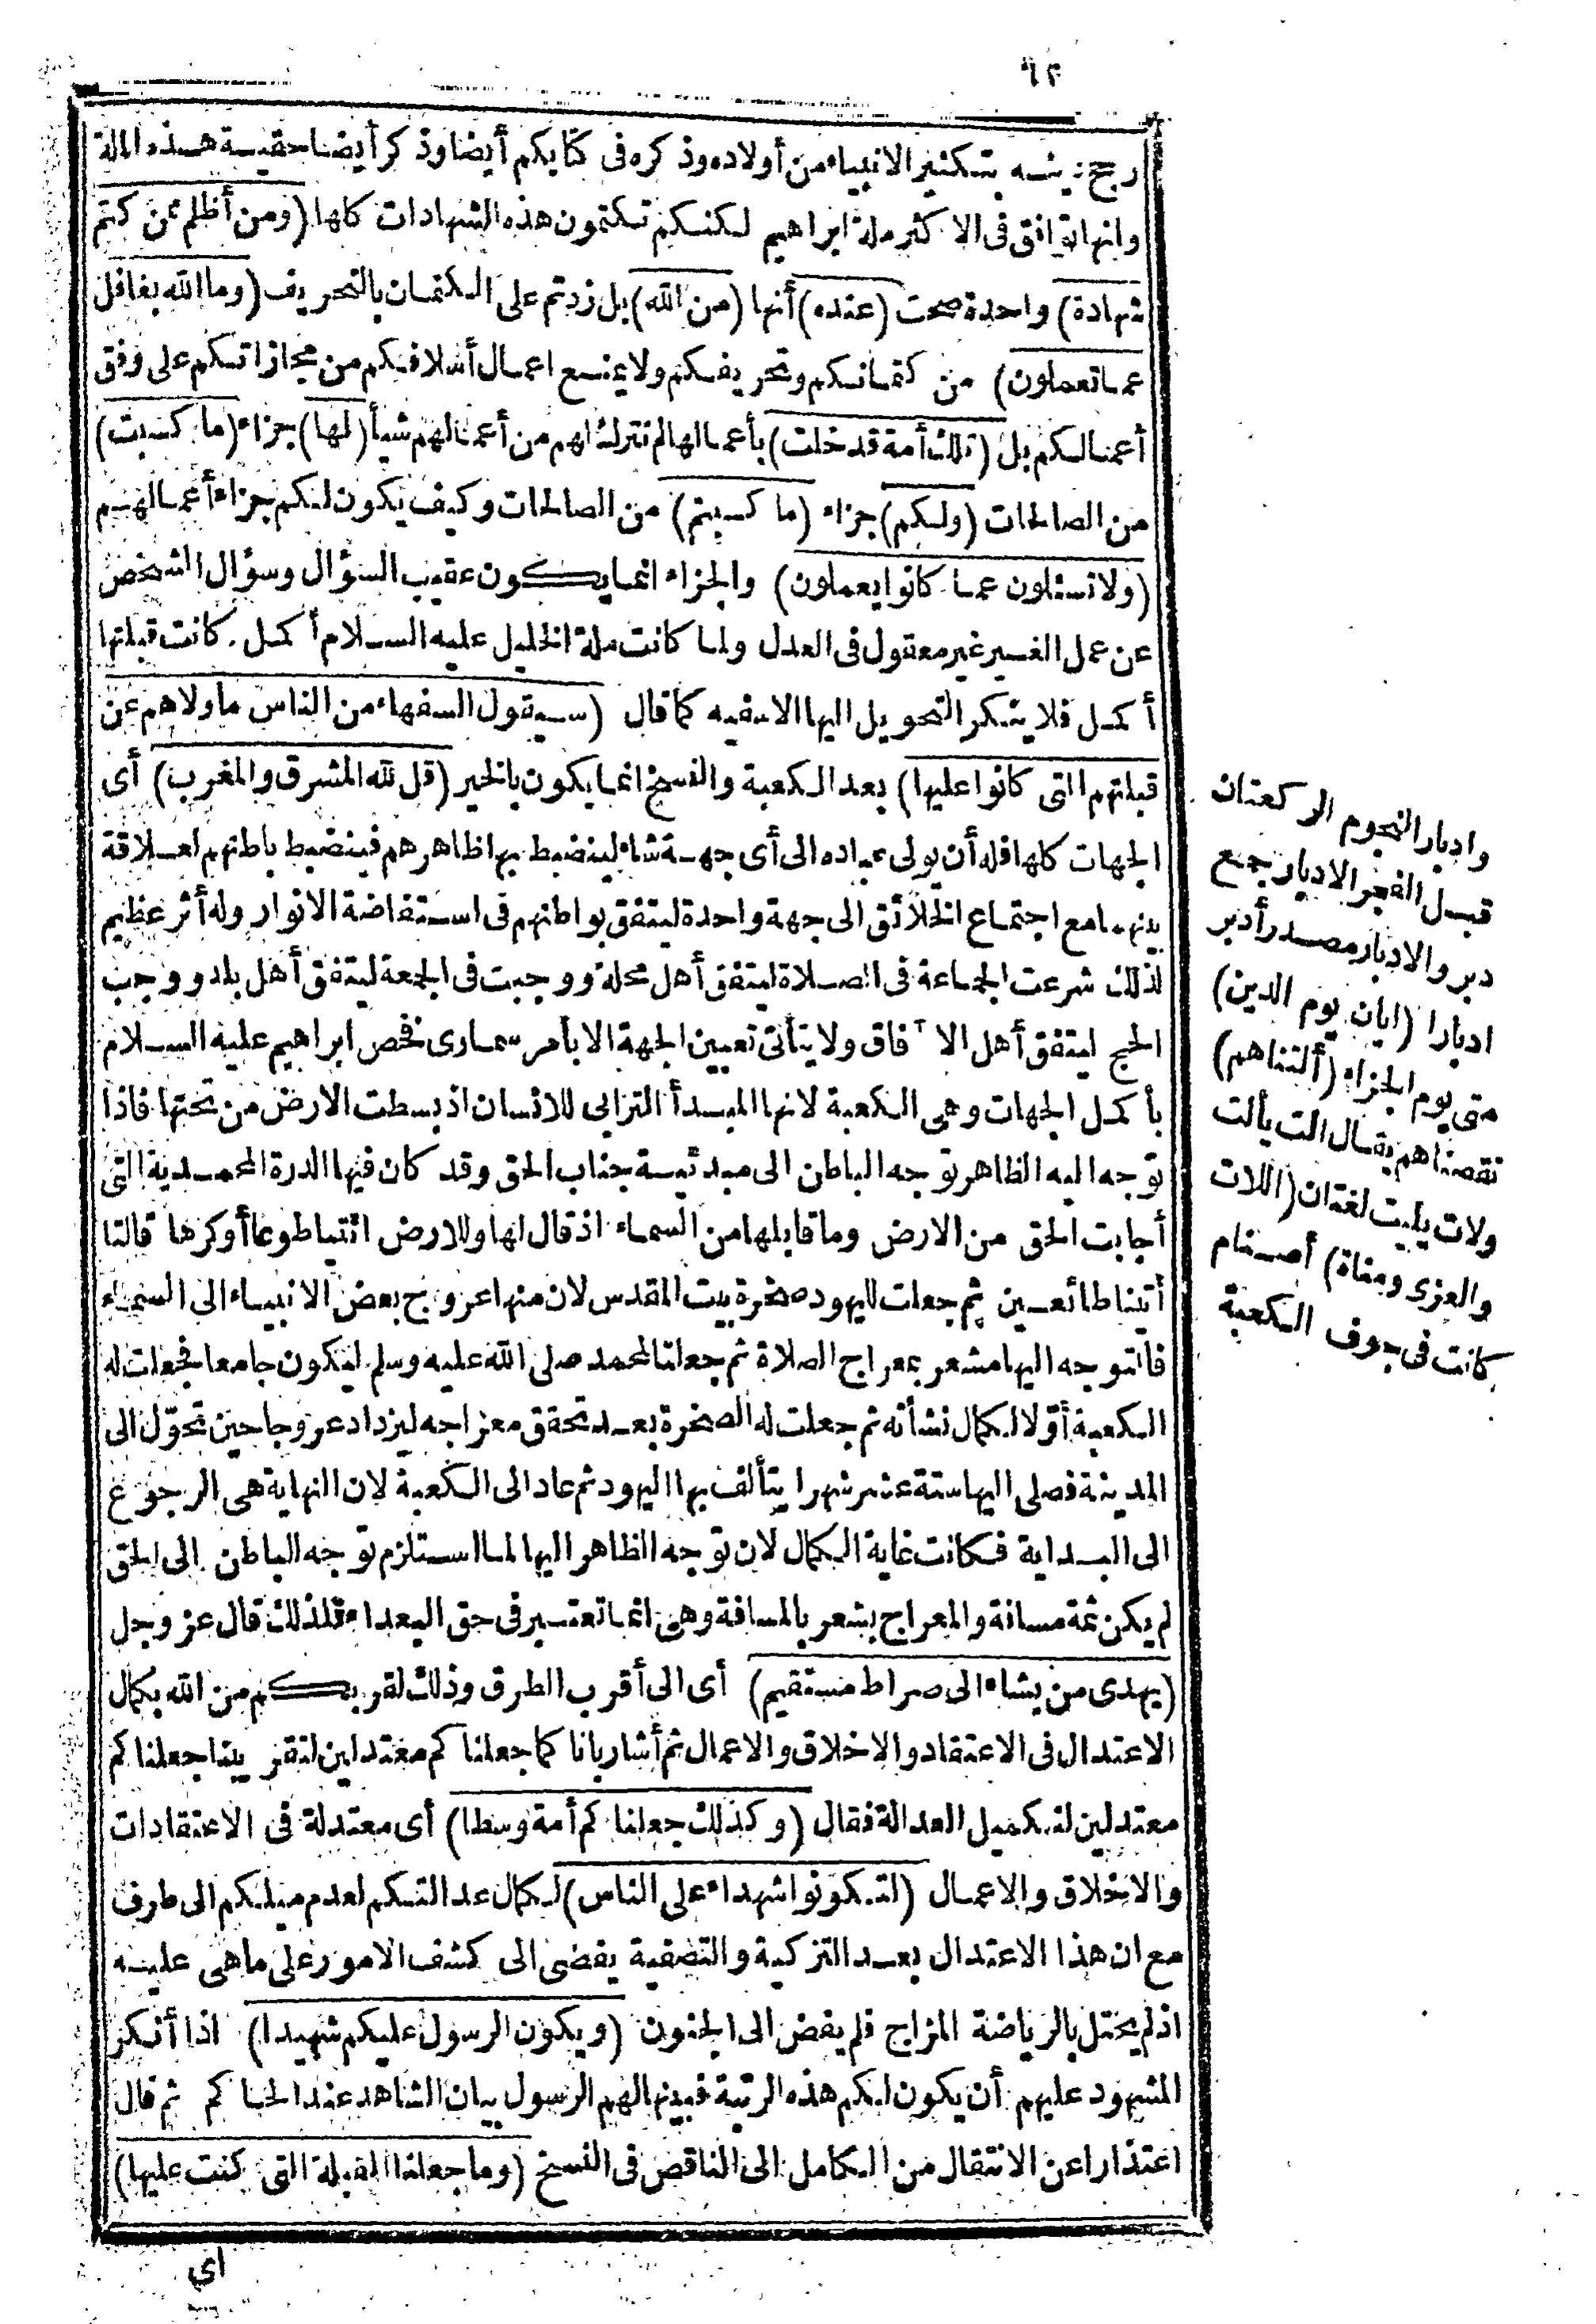 ٦٢
رجح دينه بتكثير الانبياء من أولاده وذكره فى كتابكم أيضا وذكر أيضا حقية هذه الملة
وانها توافق فى الاكثر ملة ابراهيم لكنكم تكتمون هذه الشهادات كلها (ومن أظلم ممن كتم
شهادة) واحدة صحت (عنده) أنها (من الله) بل زدتم على الكتمان بالتحريف (وما الله بغافل
عما تعملون) من كتمانكم وتحريفكم ولا يمنع اعمال أسلافكم من مجازاتكم على وفق
أعمالكم بل (تلك أمة قد خلت) بأعمالها لم نترك لهم من أعمالهم شيأ (لها) جزاء (ما كسبت)
من الصالحات (ولكم) جزاء (ما كسبتم) من الصالحات وكيف يكون لكم جزاء أعمالهم
(ولا تسئلون عما كانوا يعملون) والجزاء انما يكون عقيب السؤال وسؤال الشخص
عن عمل الغير غير معقول فى العدل ولما كانت ملة الخليل عليه السلام أكمل كانت قبلتها
أكمل فلا ينكر التحويل اليها الا سفيه كما قال (سيقول السفهاء من الناس ما ولاهم عن
قبلتهم التى كانوا عليها) بعد الكعبة والنسخ انما يكون بالخير (قل لله المشرق والمغرب) أى
الجهات كلها فله أن يولى عباده الى أى جهة شاء لينضبط بها ظاهرهم فينضبط باطنهم لعلاقة
بينهما مع اجتماع الخلائق الى جهة واحدة ليتفق بواطنهم فى استفاضة الانوار وله أثر عظيم
لذلك شرعت الجماعة فى الصلاة ليتفق أهل محلة ووجبت فى الجمعة ليتفق أهل بلد ووجب
الحج ليتفق أهل الا آفاق ولا يتأتى تعيين الجهة الا بأمر سماوى فخص ابراهيم عليه السلام
بأكمل الجهات وهى الكعبة لانها المبدأ الترابى للانسان اذ بسطت الارض من تحتها فاذا
توجه اليه الظاهر توجه الباطن الى مبدئية جناب الحق وقد كان فيها الدرة المحمدية التى
أجابت الحق من الارض وما قابلها من السماء اذ قال لها وللارض ائتيا طوعا أو كرها قالتا
أتينا طائعين ثم جعلت لليهود صخرة بيت المقدس لان منها عروج بعض الانبياء الى السماء
فالتوجه اليها مشعر بمعراج الصلاة ثم جعلتا لمحمد صلى الله عليه وسلم ليكون جامعا فجعلت له
الكعبة أوّلا لكمال نشأته ثم جعلت له الصخرة بعد تحقق معراجه ليزداد عروجا حين تحوّل الى
المدينة فصلى اليها ستة عشر شهرا يتألف بها اليهود ثم عاد الى الكعبة لان النهاية هى الرجوع
الى البداية فكانت غاية الكمال لان توجه الظاهر اليها لما استلزم توجه الباطن الى الحق
لم يكن ثمة مسافة والمعراج يشعر بالمسافة وهى انما تعتبر فى حق البعداء فلذلك قال عز وجل
(يهدى من يشاء الى صراط مستقيم) أى الى أقرب الطرق وذلك لقربكم من الله بكمال
الاعتدال فى الاعتقاد والاخلاق والاعمال ثم أشار بانا كما جعلناكم معتدلين لتقريبنا جعلناكم
معتدلين لتكميل العدالة فقال (وكذلك جعلناكم أمة وسطا) أى معتدلة فى الاعتقادات
والاخلاق والاعمال (لتكونوا شهداء على الناس) لكمال عدالتكم لعدم ميلكم الى طرف
مع ان هذا الاعتدال بعد التزكية والتصفية يفضى الى كشف الامور على ما هى عليه
اذ لم يختل بالرياضة المزاج فلم يفض الى الجنون (ويكون الرسول عليكم شهيدا) اذا أنكر
المشهود عليهم أن يكون لكم هذه الرتبة فيبينها لهم الرسول بيان الشاهد عند الحاكم ثم قال
اعتذارا عن الانتقال من الكامل الى الناقص فى النسخ (وما جعلنا القبلة التى كنت عليها)
أى
وادبار النجوم الركعتان
قبل الفجر الادبار جمع
دبر والادبار مصدر أدبر
ادبارا (ايان يوم الدين)
متى يوم الجزاء (ألتناهم)
نقصناهم يقال الت يألت
ولات يليت لغتان (اللات
والعزى ومناة) أصنام
كانت فى جوف الكعبة